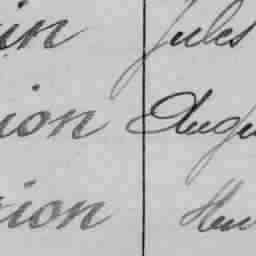 in Jules
ion Augu
ion Hen